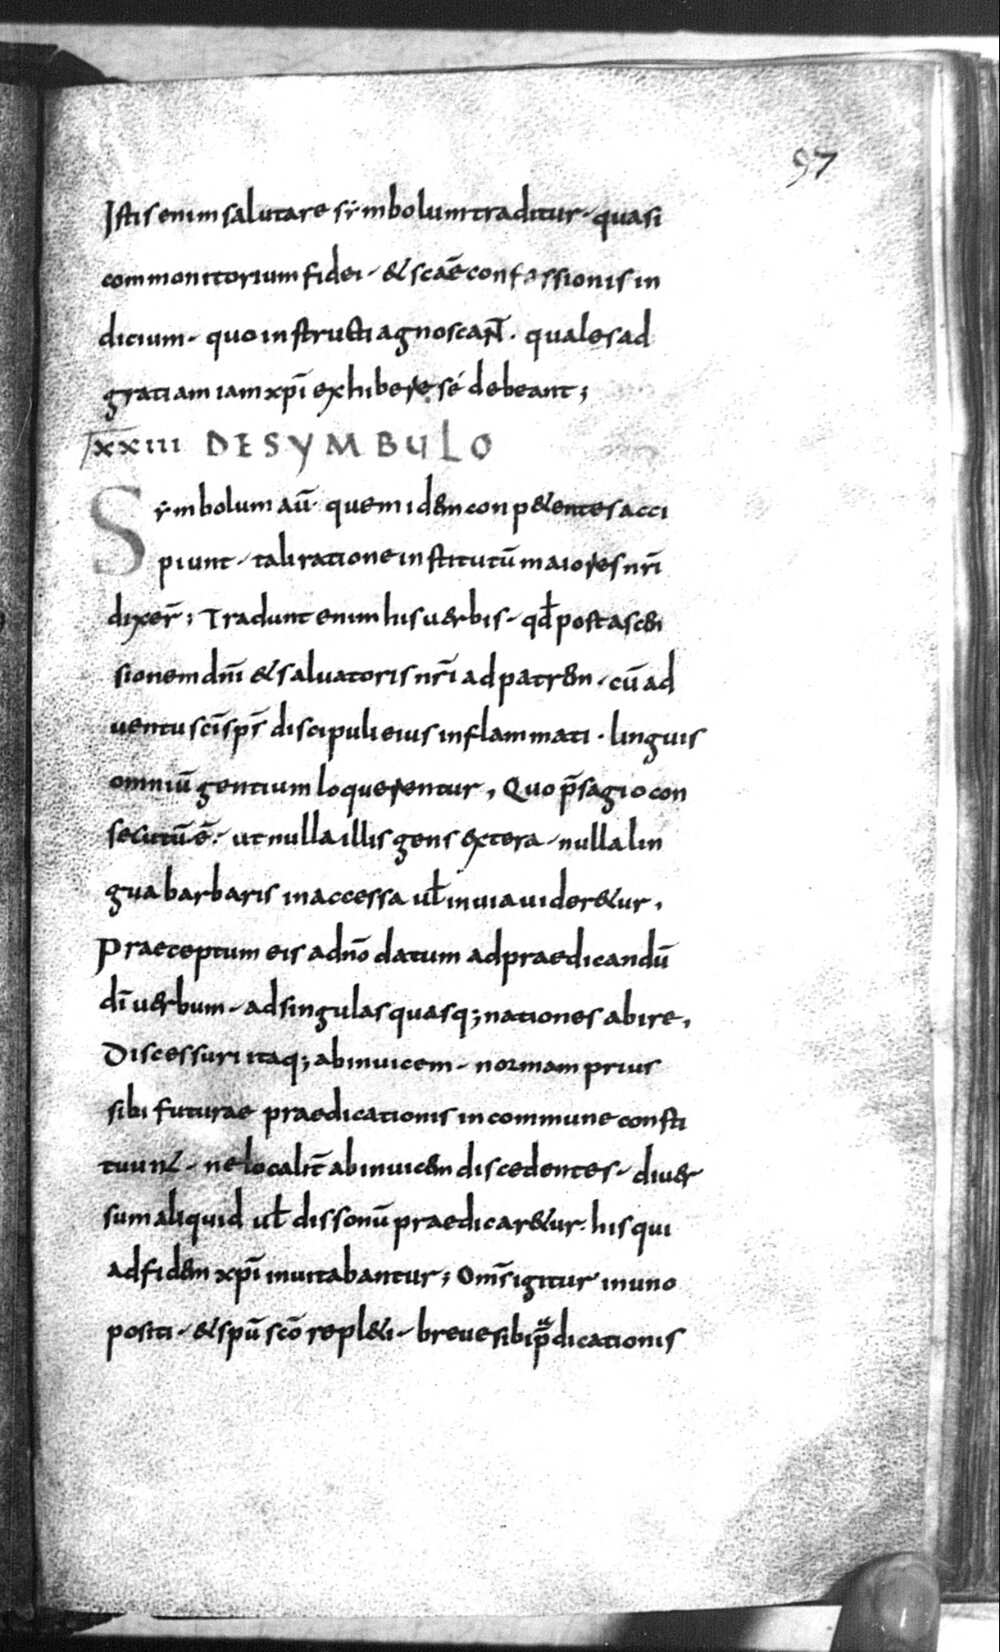 97
Istis enim salutare sẏmbolum traditur · quasi
commonitorium fidei · & scaē confessionis in
dicium · quo instructi agnoscaNT̄ · quales ad
gratiam iam xp̄i exhibere sé debeant ;
XXIII DE SYMBULO
Sẏmbolum aū · quem idem conpetentes acci
piunt · tali ratione institutū maiores nr̄i
dixer̄ ; Tradunt enim his uerbis · qđ post ascen
sionem dn̄i & salvatoris nr̄i ad patrem · cū ad
uentu sc̄i sp̄s discipuli eius inflammati · linguis
omniū gentium loquerentur , Quo p̄sagio con
secutū ē · ut nulla illis gens extera · nulla lin
gua barbaris inaccessa uł inuia uideretur ,
Praeceptum eis adn̄o datum ad praedicandū
dī uerbum · ad singulas quasq; nationes abire ,
Discessuri itaq; abinuicem · normam prius
sibi futurae praedicationis in commune consti
tuunt · ne localit̄ abinuicem discedentes · diuer
sum aliquid uł dissonū praedicar&ur · his qui
ad fidem xp̄i inuitabantur ; Om̄s igitur in uno
positi · & sp̄u sc̄o repl&i · breue sibi p̄dicationis